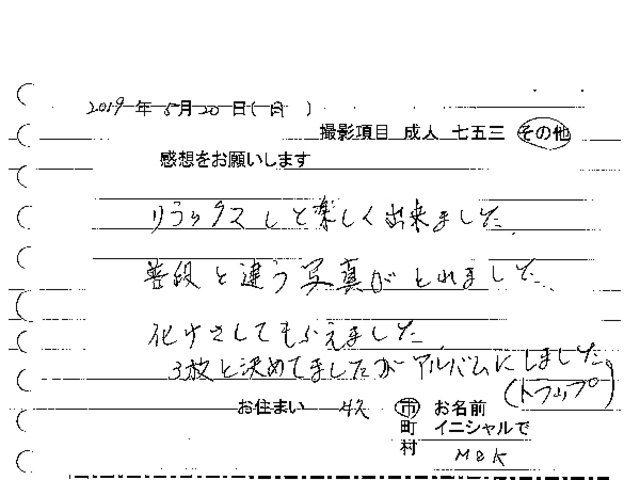 2019年5月20日(月)
撮影項目 成人 七五三 その他
感想をお願いします
リラックスして楽しく出来ました。
普段と違う写真がとれました。
化けさしてもらえました。
3枚と決めてましたがアルバムにしました。
(トフップ)
お住まい 市 お名前
町 イニシャルで
村 M&K